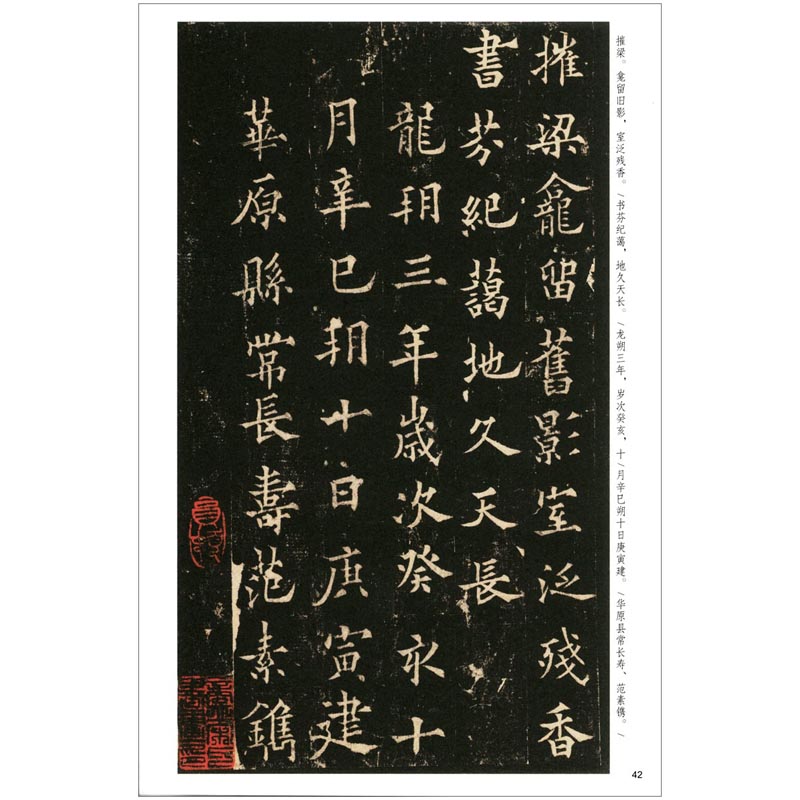 摧梁。龛留旧影，室泛残香。/书芬纪蔼，地久天长。/龙朔三年，岁次癸亥，十/月辛巳朔十日庚寅建。/华原县常长寿、范素镌。/
摧梁龕留舊影室泛殘香
書芬紀藹地久天長
龍朔三年歲次癸亥十
月辛巳朔十日庚寅建
華原縣常長壽范素鐫
42